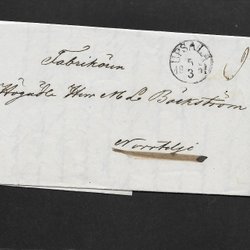 UPSALA
5
3
Fabrikören
Högädle Herr M. L. Bäckström
Norrtelje